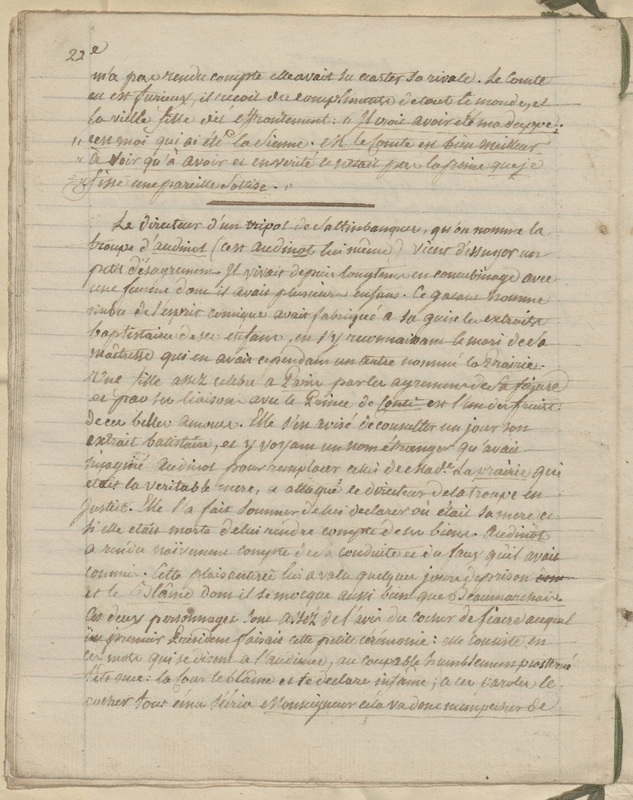 22 e
m'a pas rendu compte elle avait su ecarter sa rivale. Le Comte
en est furieux, il reçoit des complimens de tout le monde, et
la vieille fille dit effrontement: " Il croit avoir été ma duppe;
" cest moi qui ai été la sienne. Mr. le Comte est bien meilleur
" à voir qu'à avoir et en verité ce n'etait pas la peine que je
" fisse une pareille sotise. "
Le directeur d'un tripot de saltinbanques, qu'on nomme la
troupe d'audinot (cest audinot lui même) vient d'essuyer un
petit désagrement. Il vivait depuis longtems en concubinage avec
une femme dont il avait plusieurs enfans. Ce galant homme
imbu de l'esprit comique avait fabriqué à sa guise les extraits
baptistaires de ses enfans, en n'y reconnaissant le mari de sa
maîtresse qui en avait cependant un entre nommé la Prairie.
Une fille assez celebre a Paris par les agremens de sa figure
et par sa liaison avec le Prince de Conti est l'un des fruits
de ces belles amours. Elle s'est avisé de consulter un jour son
extrait batistaire, et y voyant un nom étranger qu'avait
imaginé Audinot pour remplacer celui de Made. La prairie qui
etait la veritable mere, a attaqué le directeur de la troupe en
justice. Elle l'a fait sommer de lui declarer où était sa mere et
si elle etait morte de lui rendre compte de ses biens. Audinot
a rendu naïvement compte de sa conduite et du faux qu'il avait
commis. Cette plaisanterie lui a valu quelques jours de prison
et le Blâme dont il se mocque aussi bien que Beaumarchais
Ces deux personnages sont assez de l'avis du cocher de fiacre auquel
un premier President faisait cette petite cérémonie: elle consiste en
ces mots qui se disent a l'audience, au coupable humblement prosterné
tête nue: la Cour te blâme et te declare infame; a ces paroles le
cocher tout ému s'écria Monseigneur cela va donc m'empecher de